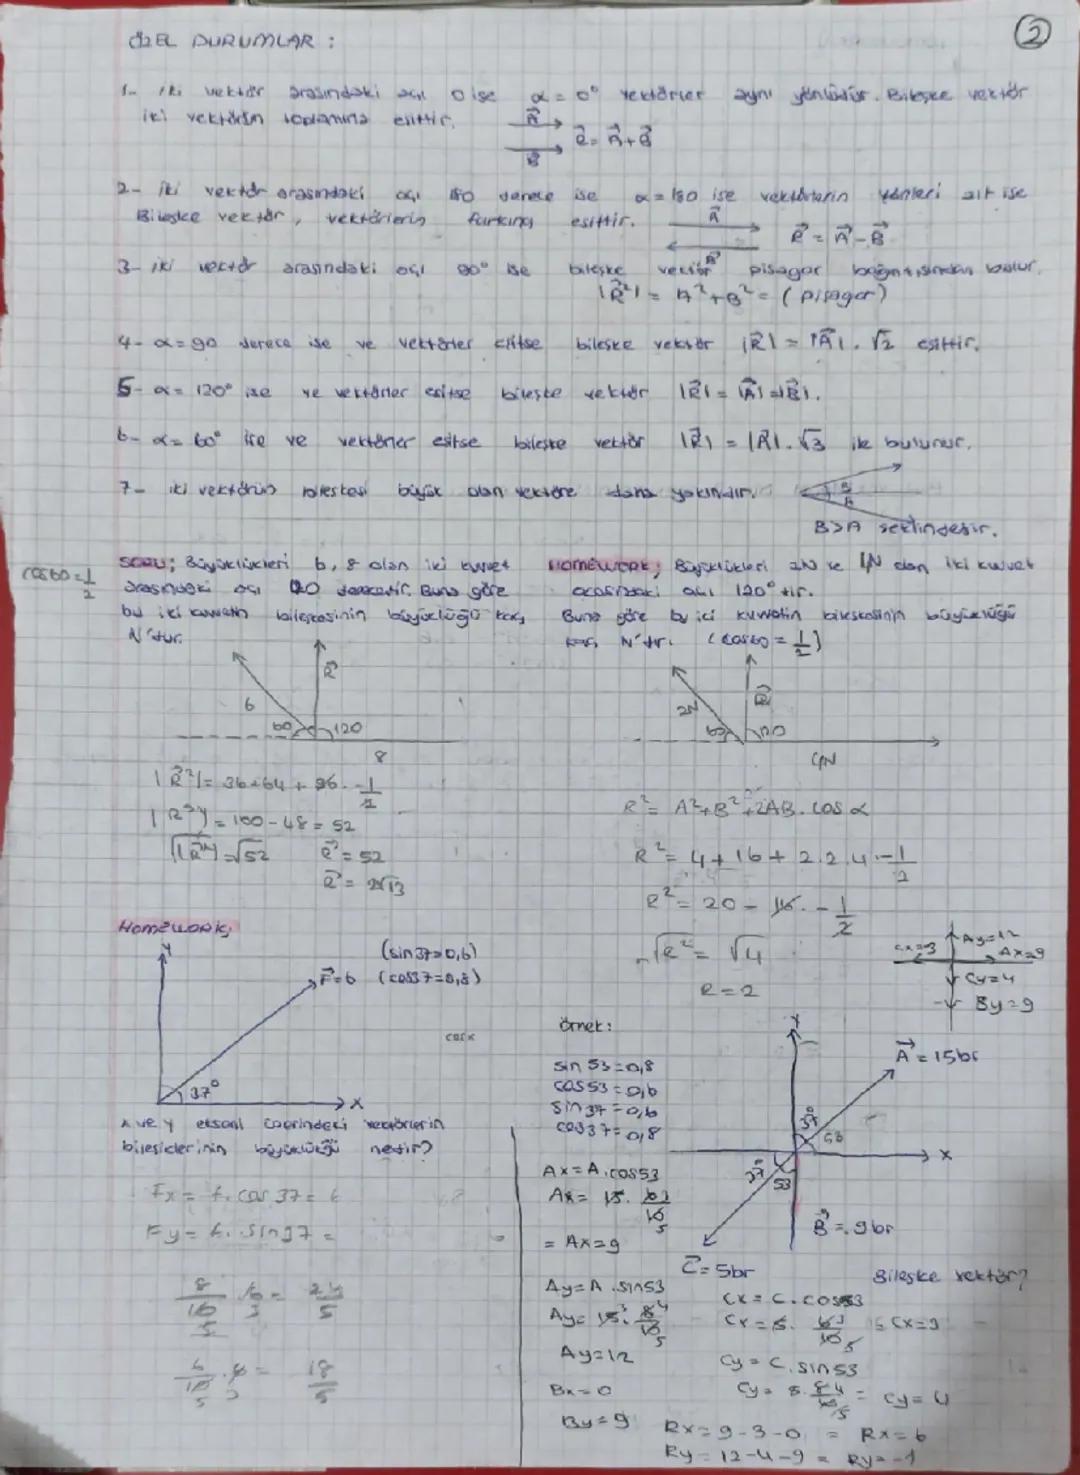 ÖZEL DURUMLAR :
2
1- iki vektör arasındaki açı 0 ise α = 0° vektörler aynı yönlüdür. Bileşke vektör
iki vektörün toplamına eşittir.
A
R = A + B
B
2- iki vektör arasındaki açı 180 derece ise α = 180 ise vektörlerin yönleri zıt ise
Bileşke vektör, vektörlerin farkına eşittir.
A
R = A - B
B
3- iki vektör arasındaki açı 90° ise bileşke vektör pisagor bağıntısından bulur.
|R²| = A² + B² = (pisagor)
4- α = 90 derece ise ve vektörler eşitse bileşke vektör |R| = |A| . √2 eşittir.
5- α = 120° ise ve vektörler eşitse bileşke vektör |R| = |A| = |B|.
6- α = 60° ise ve vektörler eşitse bileşke vektör |R| = |A| . √3 ile bulunur.
7- iki vektörün bileşkesi büyük olan vektöre daha yakındır.
B>A şeklindedir.
cos60 = 1/2
SORU; Büyüklükleri 6, 8 olan iki kuvvet
arasındaki açı 120 derecedir. Buna göre
bu iki kuvvetin bileşkesinin büyüklüğü kaç
N'dur.
R
6
60
120
8
|R²| = 36+64 + 96 . -1/2
|R²| = 100 - 48 = 52
√|R²| = √52
R² = 52
R = 2√13
HOMEWORK; Büyüklükleri 2N ve 4N olan iki kuvvet
arasındaki açı 120° tir.
Buna göre bu iki kuvvetin bileşkesinin büyüklüğü
kaç N'dur. (cos60 = 1/2)
2N
R
60
120
4N
R² = A² + B² + 2AB . cos α
R² = 4 + 16 + 2.2.4 . -1/2
R² = 20 - 16 . -1/2
√R² = √4
R = 2
HOMEWORK;
Y
(sin37=0,6)
F=6 (cos37=0,8)
37°
X
x ve y eksenl üzerindeki vektörlerin
bileşiklerinin büyüklüğü nedir?
Fx = f. cos 37 = 6
Fy = f. sin37 =
8/10 . 6 = 24/5
6/10 . 6 = 18/5
Cx=3
Ay=12
Ax=9
Cy=4
By=9
Örnek:
sin 53 = 0,8
cos53 = 0,6
sin 37 = 0,6
cos37 = 0,8
Y
A = 15br
37°
53
X
37°
53
B = 9br
C = 5br
Bileşke vektör?
Ax = A.cos53
Ax = 15 . 6/10
= Ax=9
Ay = A . sin53
Ay = 15 . 8/10
Ay=12
Bx = 0
By = 9
Cx = C . cos53
Cx = 5 . 6/10 Cx=3
Cy = C . sin53
Cy = 5 . 8/10 = Cy = 4
Rx = 9 - 3 - 0 = Rx = 6
Ry = 12 - 4 - 9 = Ry = -1